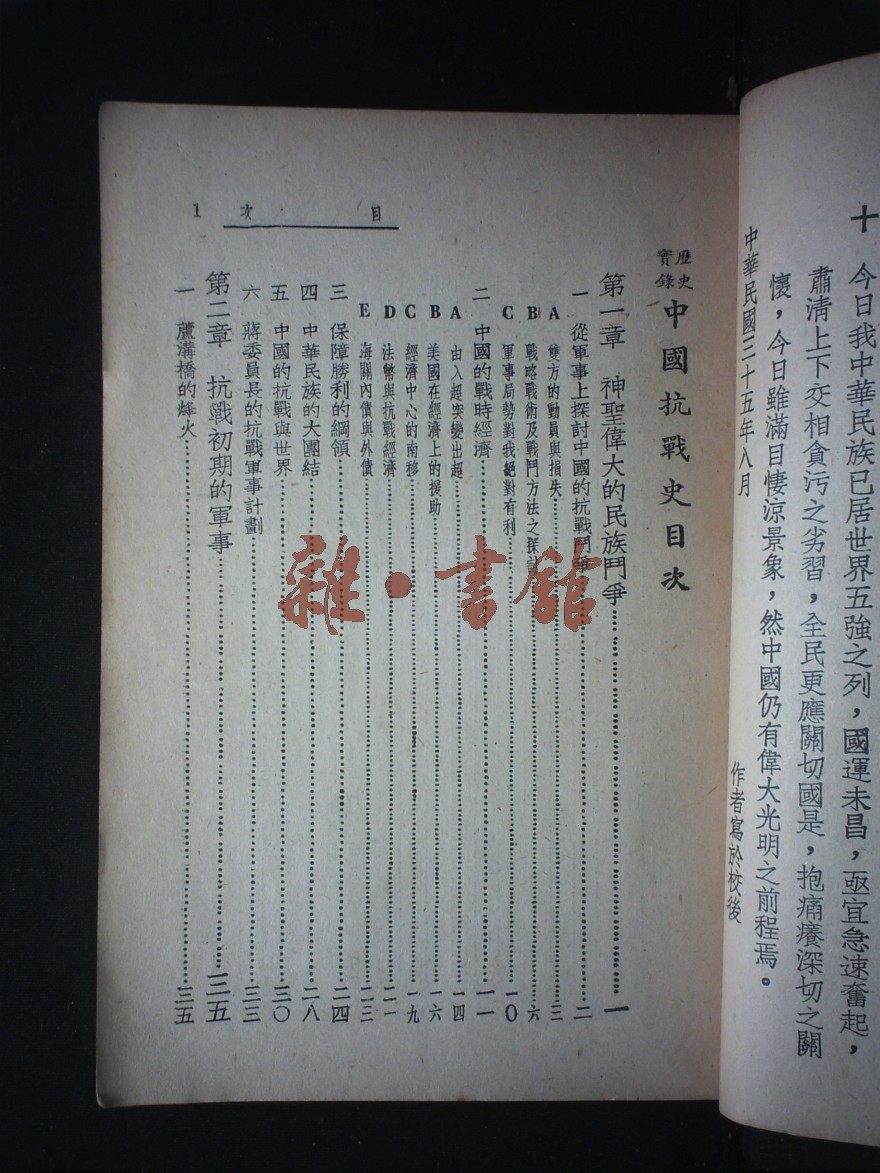 十　今日我中華民族已居世界五強之列，國運未昌，亟宜急速奮起，
肅清上下交相貪污之劣習，全民更應關切國是，抱痛癢深切之關
懷，今日雖滿目悽涼景象，然中國仍有偉大光明之前程焉。
中華民國三十五年八月
作者寫於校後
歷史實錄 中國抗戰史目次
第一章　神聖偉大的民族鬥爭……一
一　從軍事上探討中國的抗戰鬥爭……二
A　雙方的動員與損失……三
B　戰略戰術及戰鬥方法之探討……六
C　軍事局勢對我絕對有利……一〇
二　中國的戰時經濟……一一
A　由入超突變出超……一四
B　美國在經濟上的援助……一六
C　經濟中心的南移……一九
D　法幣與抗戰經濟……二一
E　海關內債與外債……二三
三　保障勝利的綱領……二四
四　中華民族的大團結……二八
五　中國的抗戰與世界……三〇
六　蔣委員長的抗戰軍事計劃……三三
第二章　抗戰初期的軍事……三五
一　蘆溝橋的烽火……三五
目次　1
雜·書館